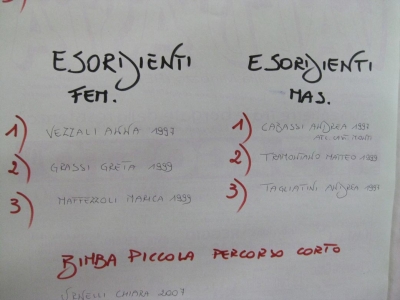 ESORDIENTI
FEM.
1) VEZZALI ANNA 1997
2) GRASSI GRETA 1999
3) MATTEZZOLI MARICA 1999
ESORDIENTI
MAS.
1) CABASSI ANDREA 1997
2) TRAMONTANO MATTEO 1999
3) TAGLIATINI ANDREA 1997
BIMBA PICCOLA PERCORSO CORTO
CHIARA 2007